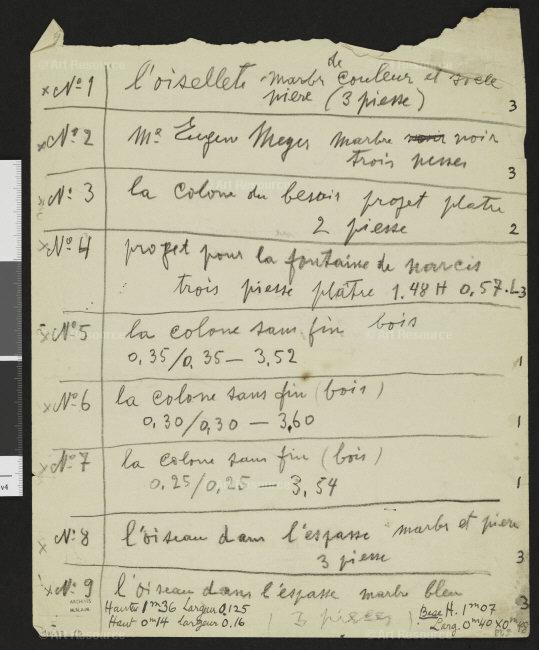 x No 1 l'oisellete marbr de couleur et socle
piere (3 piesse) 3
x No 2 Me Eugen Meyer marbre noir noir
trois pesses 3
x No 3 la colone du besois projet platre
2 piesse 2
x No 4 projet pour la fontaine de narcis
trois piesse platre 1.48 H 0,57.L 3
x No 5 la colone sans fin bois
0,35/0,35 — 3,52 1
x No 6 la colone sans fin (bois)
0,30/0,30 — 3,60 1
x No 7 la colone sans fin (bois)
0,25/0,25 — 3,54 1
x No 8 l'oiseau dans l'espasse marbr et piere
3 piesse 3
x No 9 l'oiseau dans l'espasse marbr bleu
3
Hauter 1m36 Largeur 0,125
Haut 0m14 Largeur 0.16
(3 piesses)
Base H. 1m07
Larg. 0m40 x 0m48